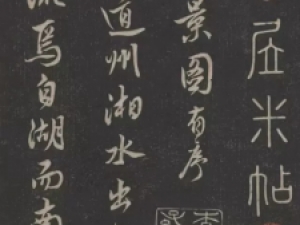 居米帖
景图有序
道州湘水出
流焉自湖而南